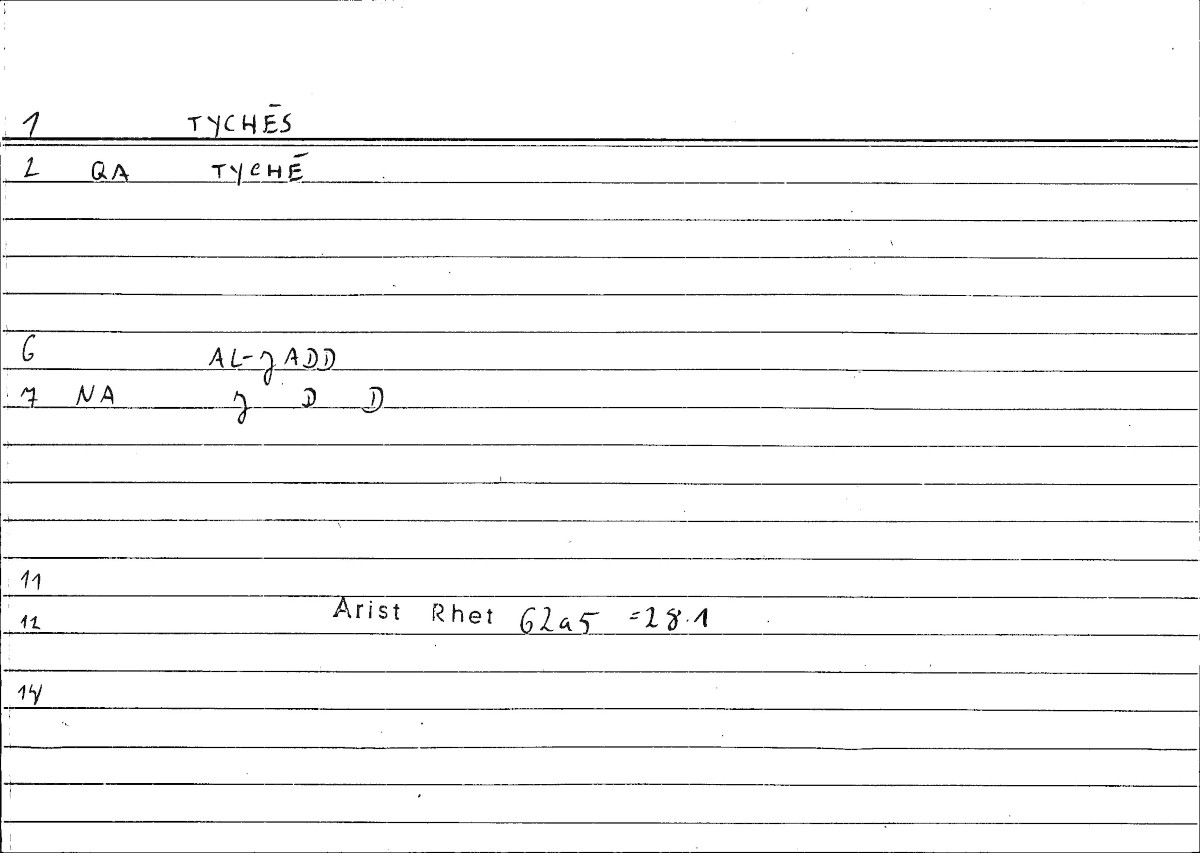 1 TYCHĒS
2 QA TYCHĒ
6 AL-ǧADD
7 NA ǧ D D
11
12 Arist Rhet 62a5 =28.1
14